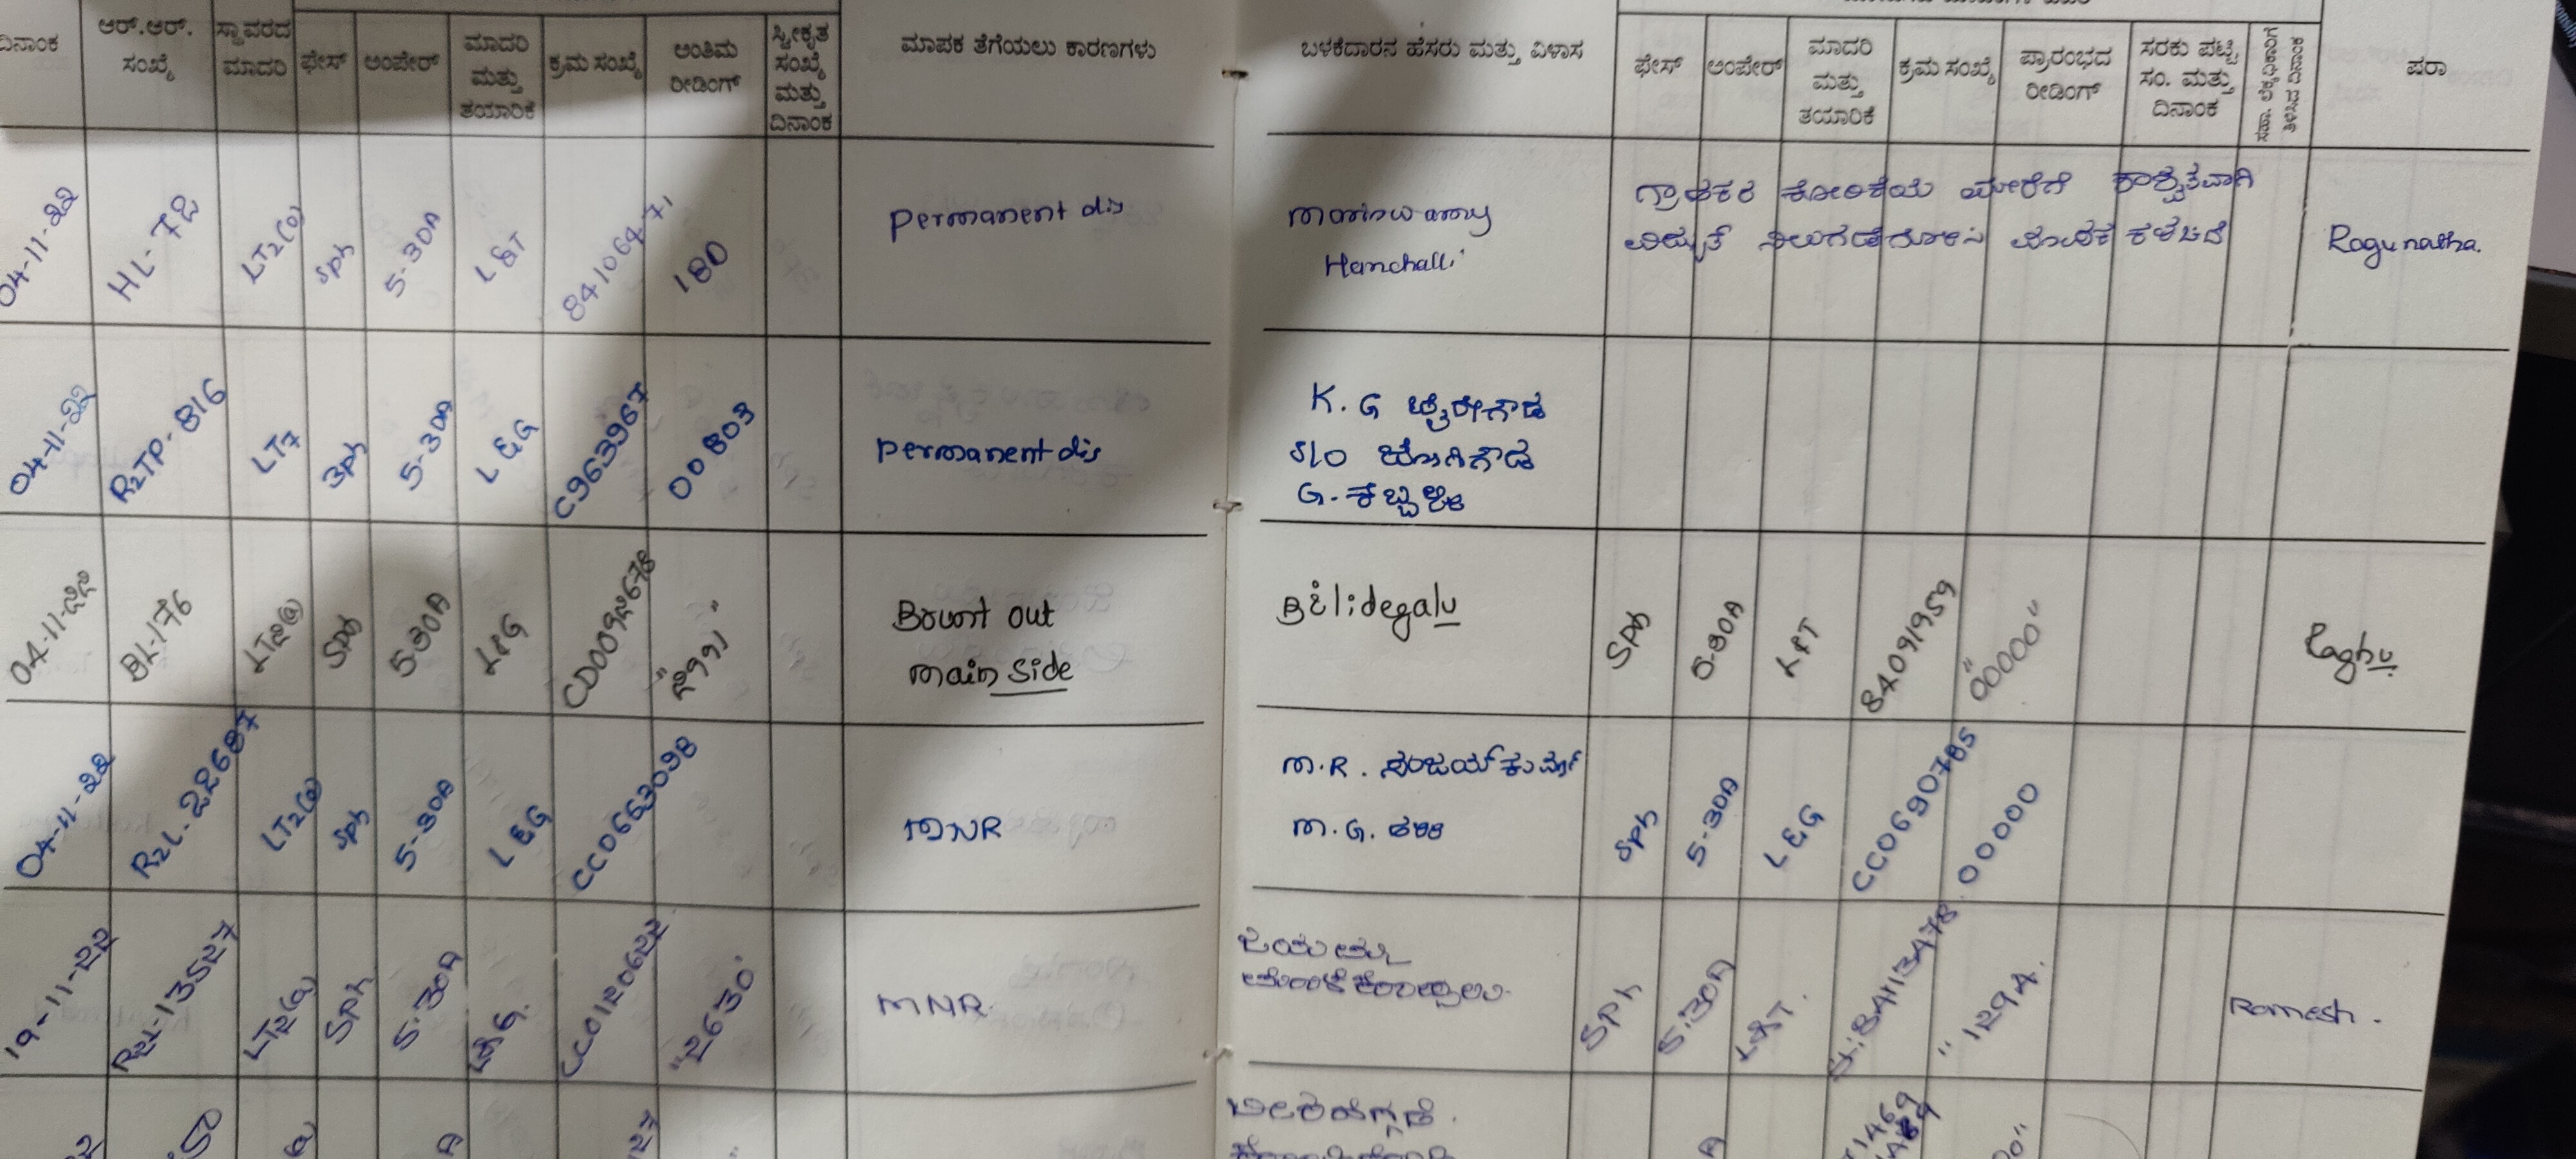 ದಿನಾಂಕ
ಆರ್.ಆರ್.
ಸಂಖ್ಯೆ
ಸ್ಥಾವರದ
ಮಾದರಿ
ಫೇಸ್
ಅಂಪೇರ್
ಮಾದರಿ
ಮತ್ತು
ತಯಾರಿಕೆ
ಕ್ರಮ ಸಂಖ್ಯೆ
ಅಂತಿಮ
ರೀಡಿಂಗ್
ಸ್ವೀಕೃತ
ಸಂಖ್ಯೆ
ಮತ್ತು
ದಿನಾಂಕ
ಮಾಪಕ ತೆಗೆಯಲು ಕಾರಣಗಳು
ಬಳಕೆದಾರನ ಹೆಸರು ಮತ್ತು ವಿಳಾಸ
ಫೇಸ್
ಅಂಪೇರ್
ಮಾದರಿ
ಮತ್ತು
ತಯಾರಿಕೆ
ಕ್ರಮ ಸಂಖ್ಯೆ
ಪ್ರಾರಂಭದ
ರೀಡಿಂಗ್
ಸರಕು ಪಟ್ಟಿ
ಸಂ. ಮತ್ತು
ದಿನಾಂಕ
ಸಹಾ. ಲೆಕ್ಕಾಧಿಕಾರಿಗೆ
ತಿಳಿಸಿದ ದಿನಾಂಕ
ಷರಾ
04-11-22
HL-72
LT2(a)
Sph
5-30A
L&T
180
Permanent dis
Hanchalli
ಗ್ರಾಹಕರ ಕೋರಿಕೆಯ ಮೇರೆಗೆ ಶಾಶ್ವತವಾಗಿ
ವಿದ್ಯುತ್ ನಿಲುಗಡೆಗೊಳಿಸಿ ಮಾಪಕ ಕಳಚಿದೆ
Ragunatha.
04-11-22
R2TP-816
LT7
3ph
5-30A
L&G
C9639967
00803
Permanent dis
K. G ಬೈರೇಗೌಡ
S/o ಜೋಗಿಗೌಡ
G. ಕೆಬ್ಬಳ್ಳಿ
04-11-22
BL-176
LT2(a)
SPh
5-30A
L&G
CD0092678
"2991"
Bount out
main side
Bilidegalu
SPh
5-30A
L&T
84091959
"00000"
Raghu
04-11-22
R2L-22687
LT2(a)
Sph
5-30A
L&G
CC0663098
MNR
M.R. ಸಂಜಯ್ ಕುಮಾರ್
M.G.
Sph
5-30A
L&G
CC0690785
00000
19-11-22
R2L-13527
LT2(a)
SPh
5-30A
L&G.
CC0120622
"2630"
MNR.
ಜಯಮ್ಮ
SPh
5-30A
L&T.
84113478
"1294.
Ramesh.